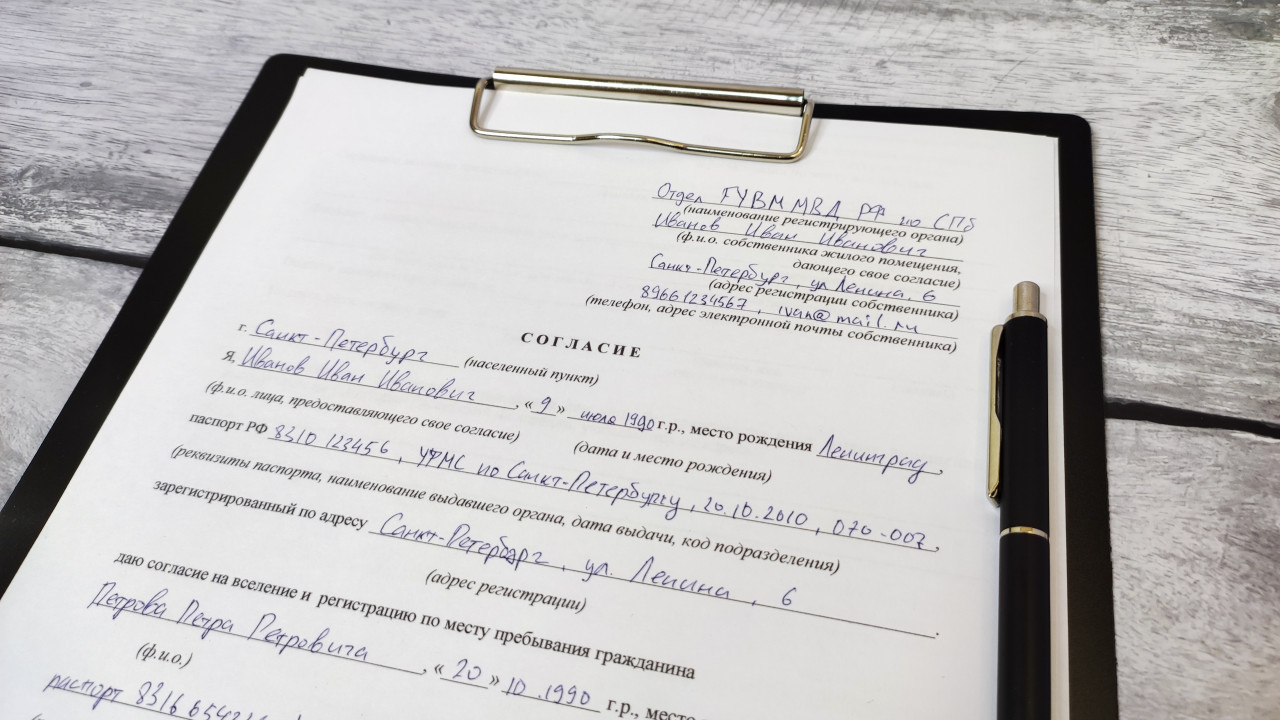 Отдел ГУВМ МВД РФ по СПб
(наименование регистрирующего органа)
Иванов Иван Иванович
(ф.и.о. собственника жилого помещения,
дающего свое согласие)
Санкт-Петербург, ул Ленина, 6
(адрес регистрации собственника)
89661234567, ivan@mail.ru
(телефон, адрес электронной почты собственника)
СОГЛАСИЕ
г. Санкт-Петербург (населенный пункт)
Я, Иванов Иван Иванович, «9» июля 1990 г.р., место рождения Ленинград,
(ф.и.о. лица, предоставляющего свое согласие) (дата и место рождения)
паспорт РФ 8310 123456, УФМС по Санкт-Петербургу, 20.10.2010, 070-007,
(реквизиты паспорта, наименование выдавшего органа, дата выдачи, код подразделения)
зарегистрированный по адресу Санкт-Петербург, ул. Ленина, 6.
(адрес регистрации)
даю согласие на вселение и регистрацию по месту пребывания гражданина
Петрова Петра Петровича, «20» 10.1990 г.р., место
(ф.и.о.)
паспорт 8316